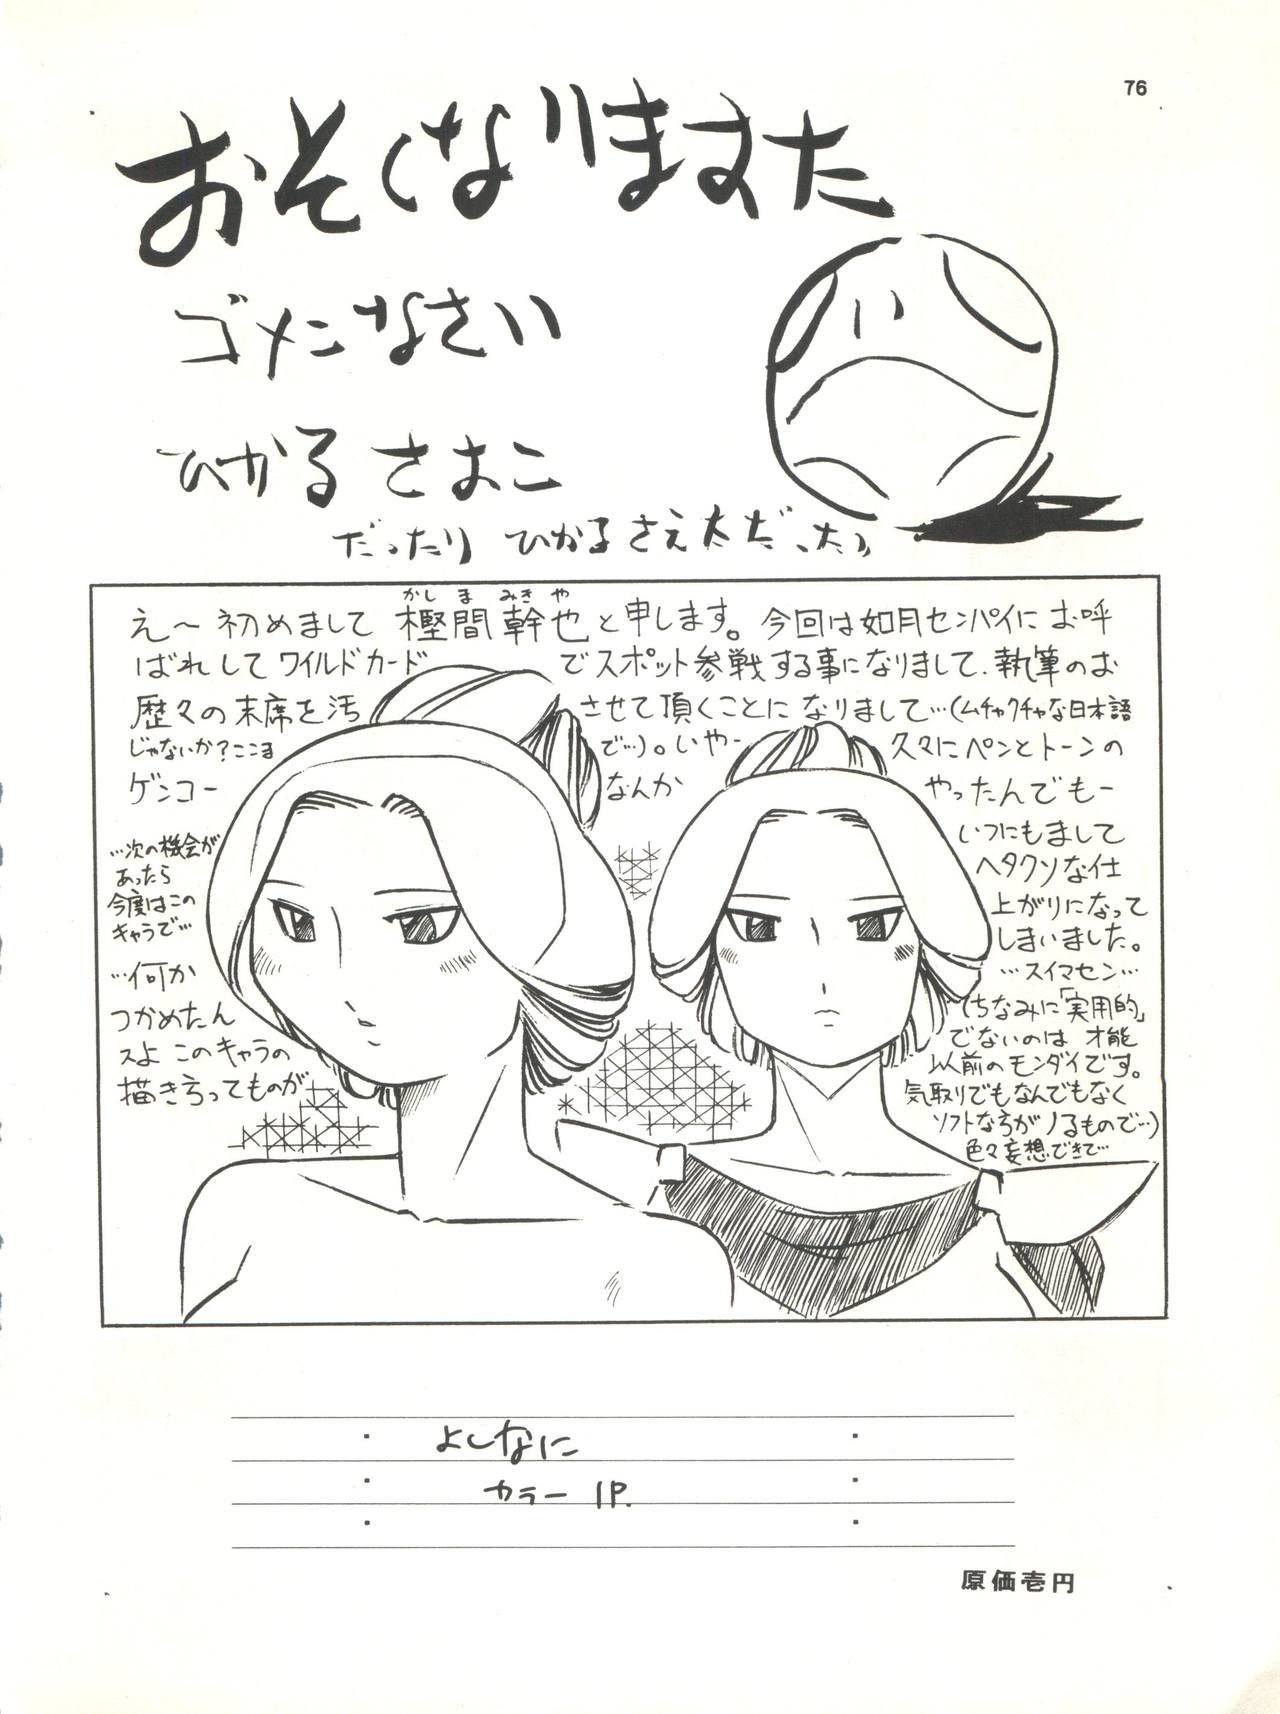 76
おそくなりまスた
ゴメンなさい
ひかる さおこ
だったり ひかるさえただったり
え〜初めまして樫間幹也と申します。今回は如月センパイにお呼
かしま みきや
ばれしてワイルドカードでスポット参戦する事になりまして、執筆のお
歴々の末席を汚させて頂くことになりまして…(ムチャクチャな日本語
じゃないか?ここまで…)。いやー久々にペンとトーンの
ゲンコーなんかやったんでもー
いつにもまして
ヘタクソな仕
上がりになって
しまいました。
…スイマセン…
(ちなみに「実用的」
でないのは 才能
以前のモンダイです。
気取りでもなんでもなく
ソフトな方がノるもので…)
色々妄想できて…
…次の機会が
あったら
今度はこの
キャラで…
…何か
つかめたん
スよ このキャラの
描き方ってものが
よしなに
カラー 1P.
原価壱円